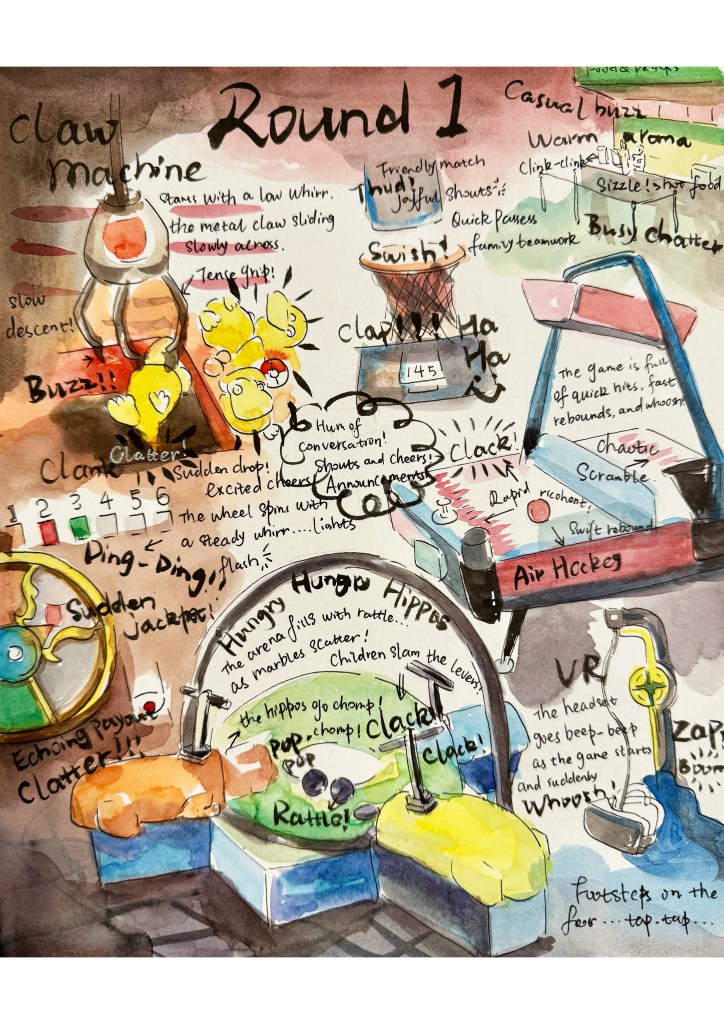 Round 1
Claw
Machine
Starts with a low whirr.
the metal claw sliding
slowly across.
Tense grip!
Slow
descent!
Buzz!!
Clatter!
Clank
Sudden drop!
excited cheers!
1 2 3 4 5 6
The wheel spins with
a steady whirr....lights
flash,
Ding-Ding,
Sudden
jackpot!
Echoing payout
Clatter!!!
Friendly match
Thud!
Joyful Shouts
Quick Passess
family teamwork
Swish!
Clap!!!
Ha
Ha
145
Hum of
conversation!
Shouts and cheers!
Announcements
Casual buzz
Warm aroma
Clink-clink
Sizzle! hot food
Busy chatter
The game is full
of quick hits, fast
rebounds, and whoosh!
Clack!
Chaotic
Scramble
Rapid ricohant!
Swift rebound
Air Hockey
Hungry Hungry Hippos
The arena fills with rattle...
as marbles scatter!
Children slam the levers!
the hippos go chomp!
chomp!
Pop,
Pop
Clack!
Clack!
Rattle!
VR
The headset
goes beep-beep
as the game starts
and suddenly
Whoosh!
Zap
Boom
Footsteps on the
foor...tap.tap...